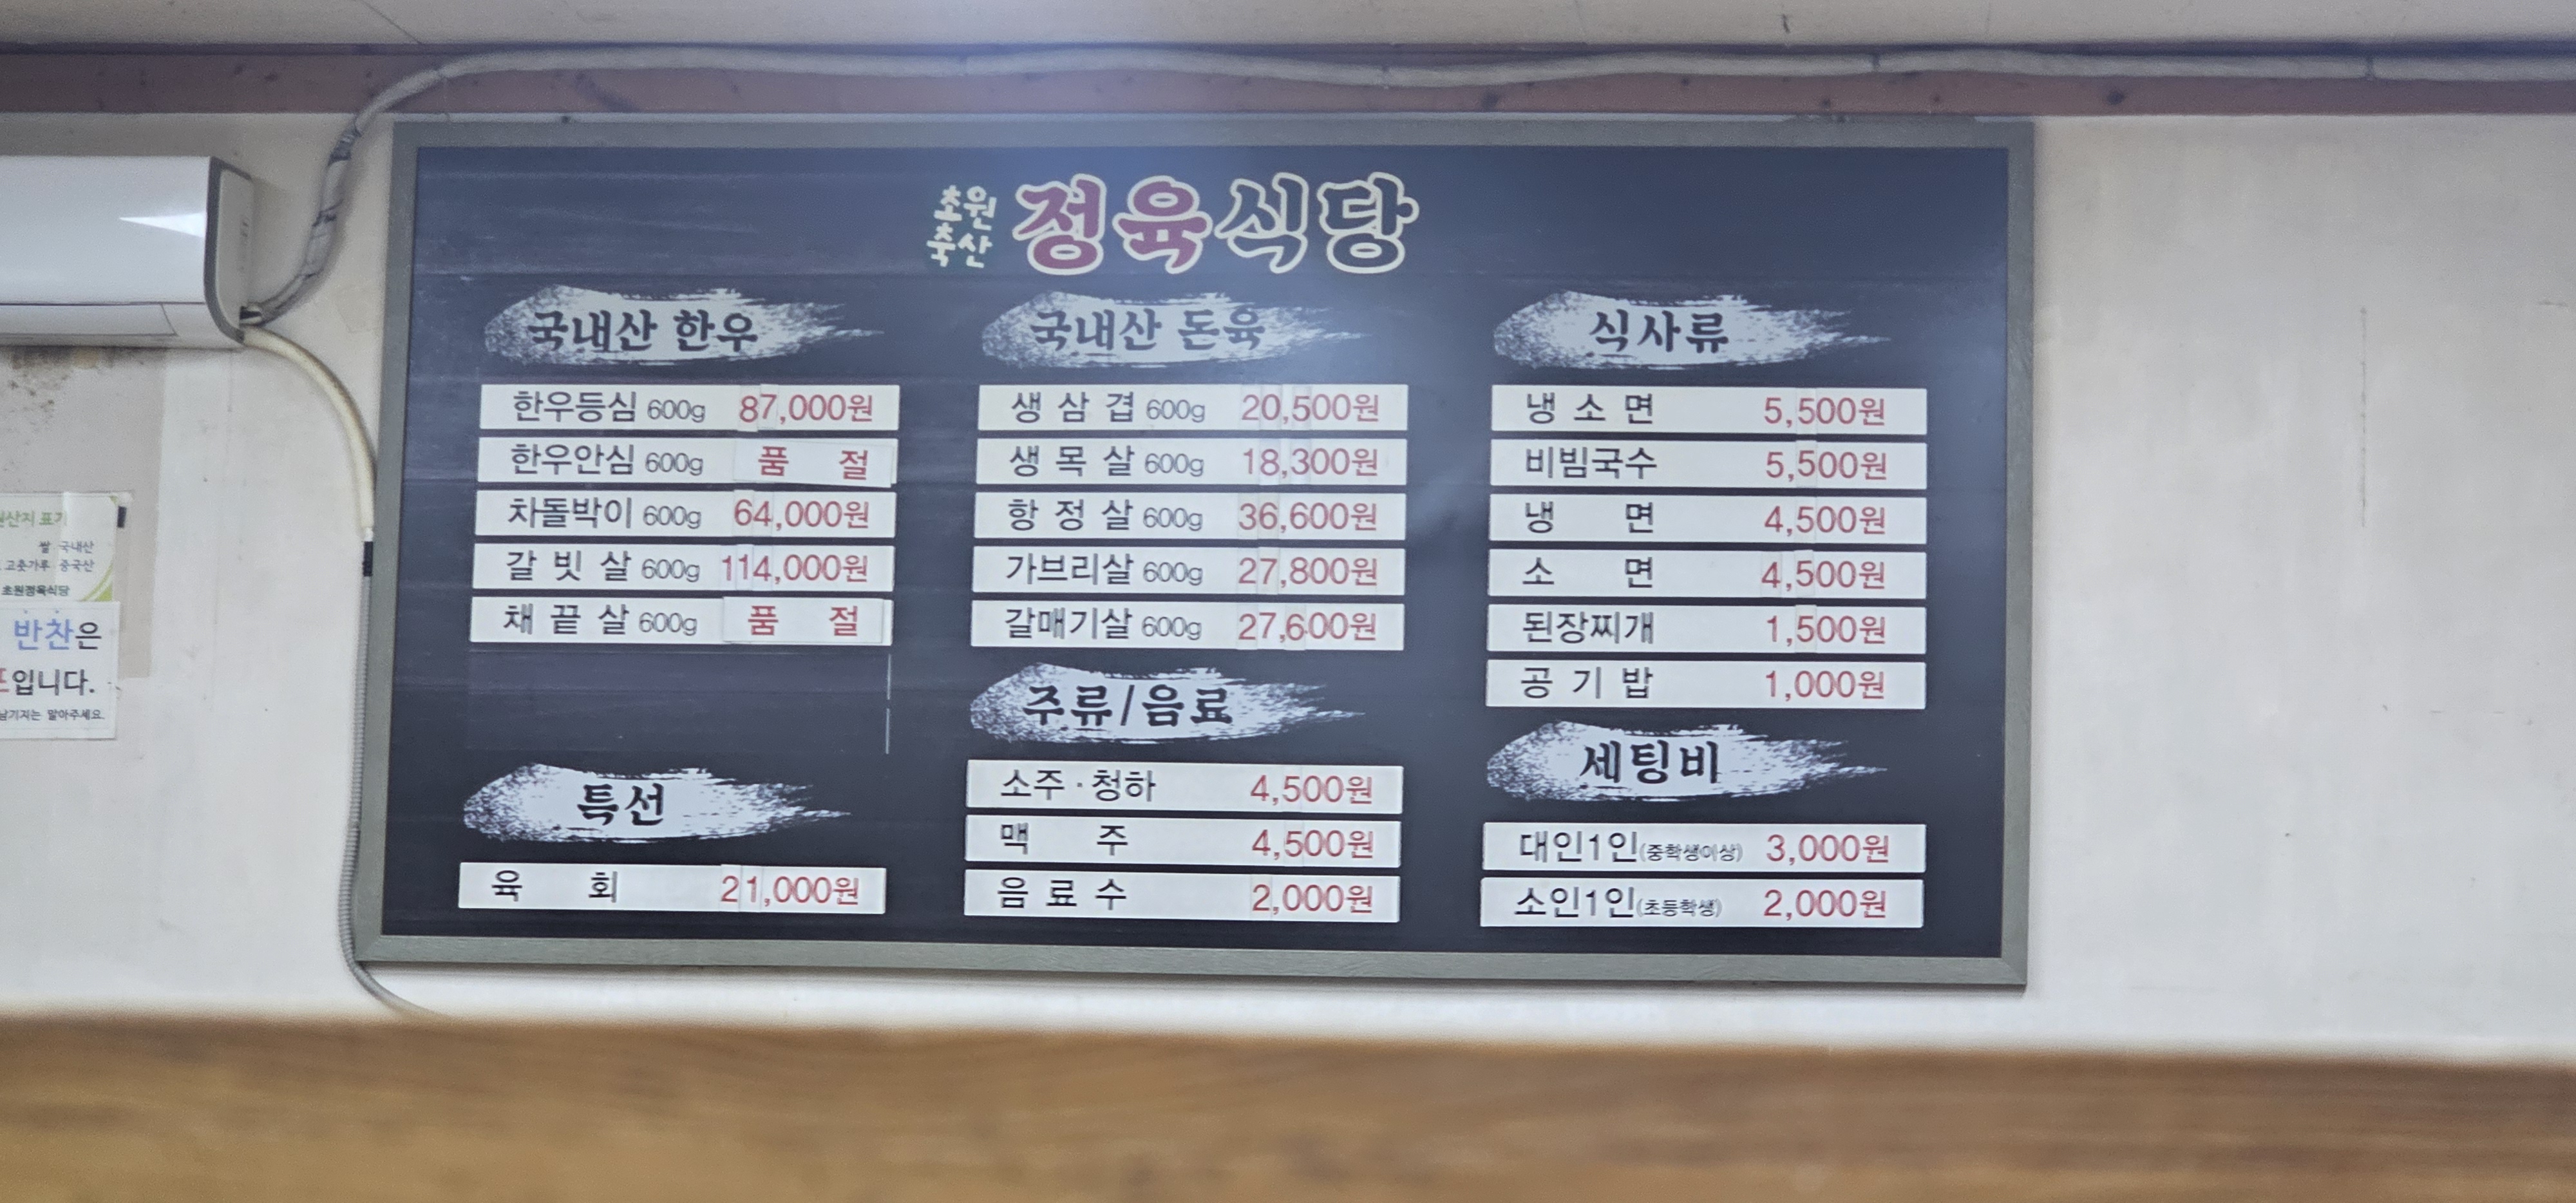 초원
축산
정육식당
국내산 한우
한우등심 600g 87,000원
한우안심 600g 품 절
차돌박이 600g 64,000원
갈 빗 살 600g 114,000원
채 끝 살 600g 품 절
특선
육 회 21,000원
국내산 돈육
생 삼 겹 600g 20,500원
생 목 살 600g 18,300원
항 정 살 600g 36,600원
가브리살 600g 27,800원
갈매기살 600g 27,600원
주류/음료
소주·청하 4,500원
맥 주 4,500원
음 료 수 2,000원
식사류
냉 소 면 5,500원
비빔국수 5,500원
냉 면 4,500원
소 면 4,500원
된장찌개 1,500원
공 기 밥 1,000원
세팅비
대인1인(중학생이상) 3,000원
소인1인(초등학생) 2,000원
표기
쌀 국내산
고춧가루 중국산
초원정육식당
반찬은
입니다.
남기지는 말아주세요.